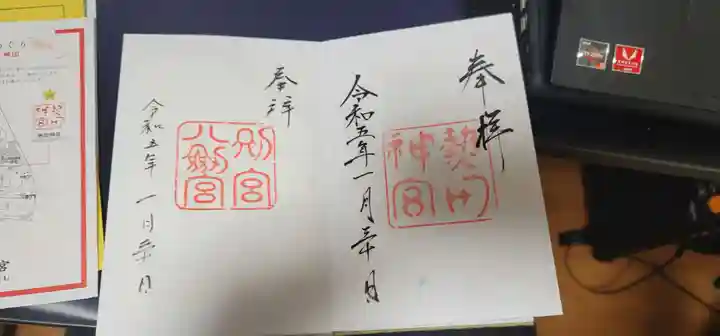 奉拝
熱田
神宮
令和五年一月三十日
奉拝
別宮
八剣宮
令和五年一月三十日